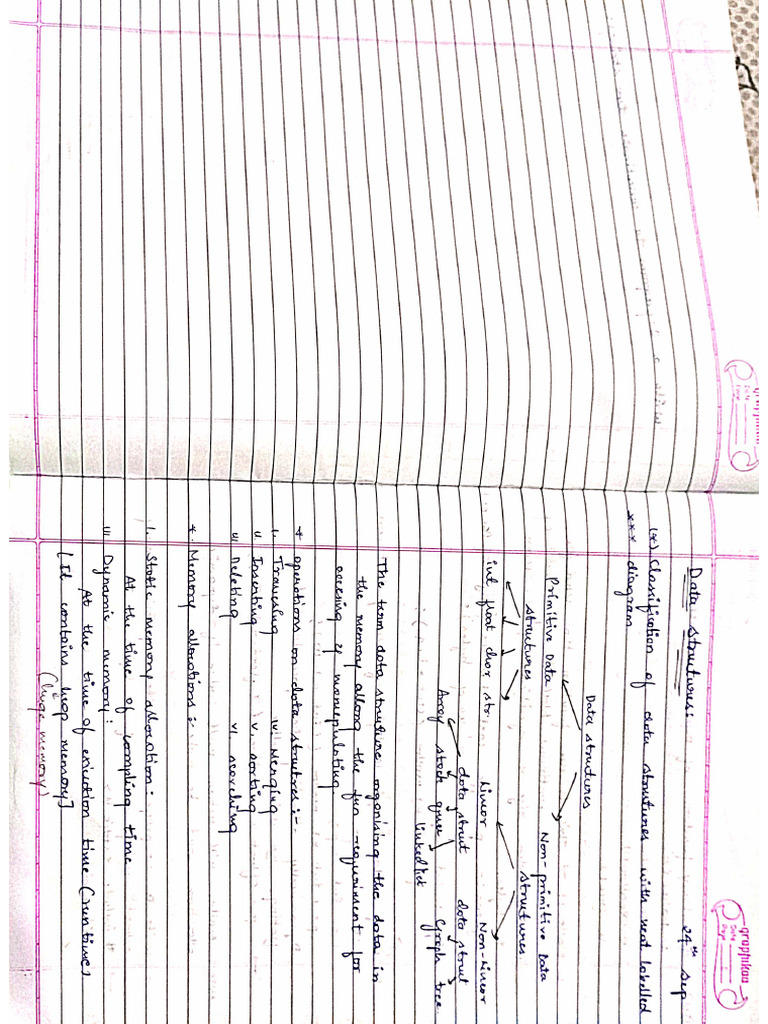 graphikaa
Date
Page
24th Sep
Data structures:
(*) Classification of data strutures with neat labelled
*** diagram
Data strutures
Primitive Data
structures
Non-primitive Data
structures
int float char str
Linear
data struct
Non-Linear
data struct
Array stack queue
linked list
Graph tree
The term data struture organising the data in
the memory allong the fun -requiriment for
accesing & manipulating
* operations on data structres:-
i. Traversing iv. Merging
ii. Inserting v. sorting
iii Deleting vi searching
* Memory allorations:-
i. Static memory alloration:-
At the time of compling time
ii Dynamic memory:
At the time of exicution time (runtime)
[It contains heap memory]
(huge memory)